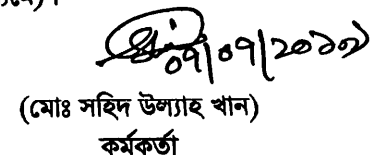 ০৭/০৭/২০১৭
(মোঃ সহিদ উল্যাহ খান)
কর্মকর্তা